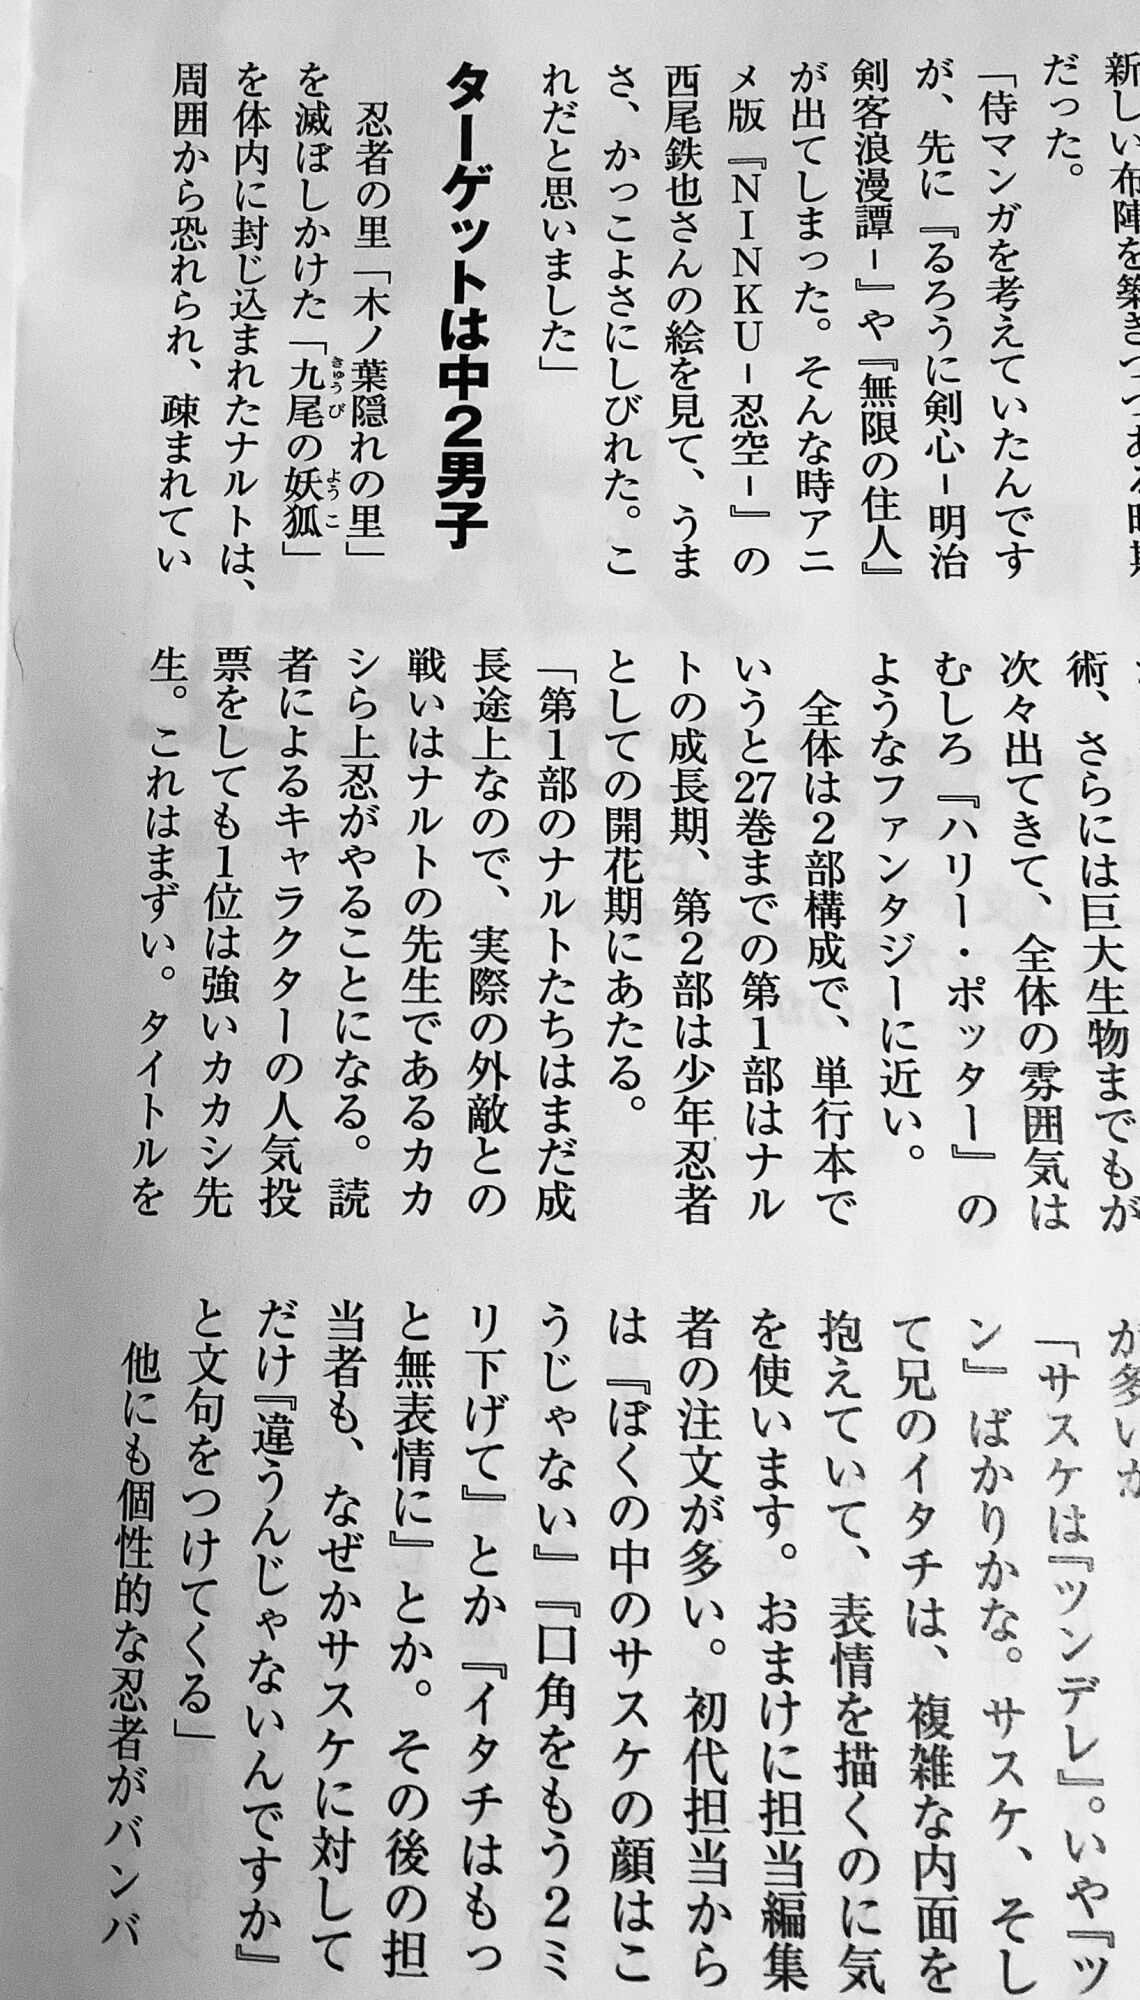 新しい布陣を築きつつある時期
だった。
「侍マンガを考えていたんです
が、先に『るろうに剣心－明治
剣客浪漫譚－』や『無限の住人』
が出てしまった。そんな時アニ
メ版『ＮＩＮＫＵ－忍空－』の
西尾鉄也さんの絵を見て、うま
さ、かっこよさにしびれた。こ
れだと思いました」
ターゲットは中２男子
忍者の里「木ノ葉隠れの里」
を滅ぼしかけた「九尾の妖狐」
きゅうび
ようこ
を体内に封じ込まれたナルトは、
周囲から恐れられ、疎まれてい
術、さらには巨大生物までもが
次々出てきて、全体の雰囲気は
むしろ『ハリー・ポッター』の
ようなファンタジーに近い。
全体は２部構成で、単行本で
いうと27巻までの第１部はナル
トの成長期、第２部は少年忍者
としての開花期にあたる。
「第１部のナルトたちはまだ成
長途上なので、実際の外敵との
戦いはナルトの先生であるカカ
シら上忍がやることになる。読
者によるキャラクターの人気投
票をしても１位は強いカカシ先
生。これはまずい。タイトルを
が多いが
「サスケは『ツンデレ』。いや『ツ
ン』ばかりかな。サスケ、そし
て兄のイタチは、複雑な内面を
抱えていて、表情を描くのに気
を使います。おまけに担当編集
者の注文が多い。初代担当から
は『ぼくの中のサスケの顔はこ
うじゃない』『口角をもう２ミ
リ下げて』とか『イタチはもっ
と無表情に』とか。その後の担
当者も、なぜかサスケに対して
だけ『違うんじゃないんですか』
と文句をつけてくる」
他にも個性的な忍者がバンバ